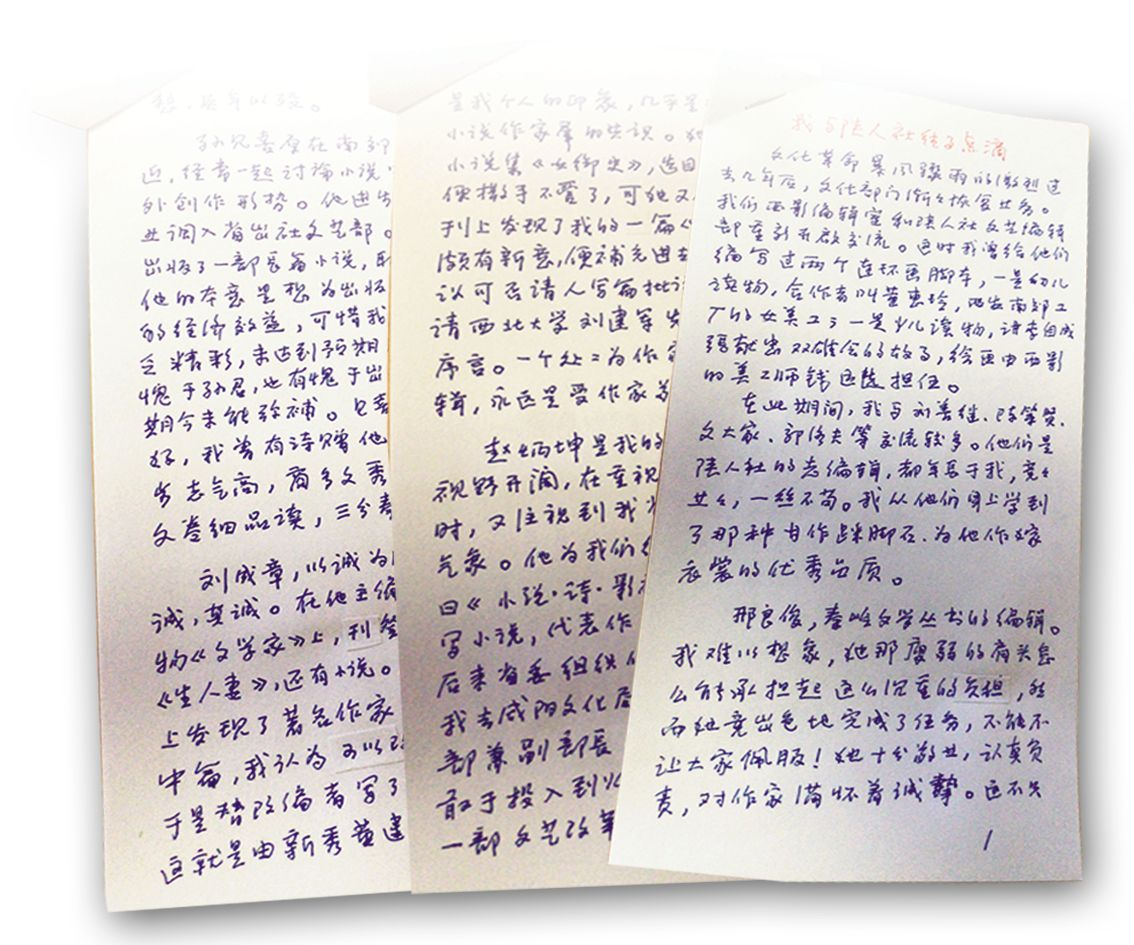 我与陕人社结了点滴
文化革命暴风骤雨的激烈过
去几年后，文化部门渐々恢复业务。
我们西影编辑室和陕人社文艺编辑
部重新开启交流。这时我曾给他们
编写过两个连环画脚本，一是幼儿
读物，合作者叫黄惠玲，西安南郊工
厂的女美工；一是少儿读物，诗李自成
张献忠双雄会的故事，绘画由西影
的美工师钱运选担任。
在此期间，我与刘善继、陈策贤、
文大家、郭传夫等交流较多。他们是
陕人社的老编辑，都年长于我，兢々
业々，一丝不苟。我从他们身上学到
了那种甘作踩脚石、为他作嫁
衣裳的优秀品质。
邢良俊，秦岭文学丛书的编辑。
我难以想象，她那瘦弱的肩头怎
么能承担起这么沉重的负担，然
而她竟出色地完成了任务，不能不
让大家佩服！她十分敬业，认真负
责，对作家满怀着诚挚。这不失
1
是我个人的印象，几乎是
小说作家群的共识。她
小说集《女御史》，选目
便撒手不管了，可她又
刊上发现了我的一篇
颇有新意，便补充进去
认可否请人写篇批评
请西北大学刘建军先
序言。一个处々为作家
辑，永远是受作家尊
赵炳坤是我的
视野开阔，在重视
时，又注视到我省
气象。他为我们
曰《小说·诗·影
写小说，代表作
后来省委组织
我去咸阳文化局
部兼副部长
敢于投入到火
一部文艺改革
想，后年以强。
孙兄喜原在南郊
近，经常一起讨论小说
外创作形势。他进步
业调入省出社文艺部。
出版了一部长篇小说，
他的本意是想为出版
的经济效益，可惜我
乏精彩，未达到预期
愧于孙君，也有愧于出
期今未能弥补。兄喜
好，我曾有诗赠他
步志气高，商多文秀
文卷细品读，三分春
刘成章，以诚为
诚，真诚。在他主编
物《文学家》上，刊登
《生人妻》，还有小说。
上发现了著名作家
中篇，我认为可以改
于是替改编者写了
这就是由新秀黄建